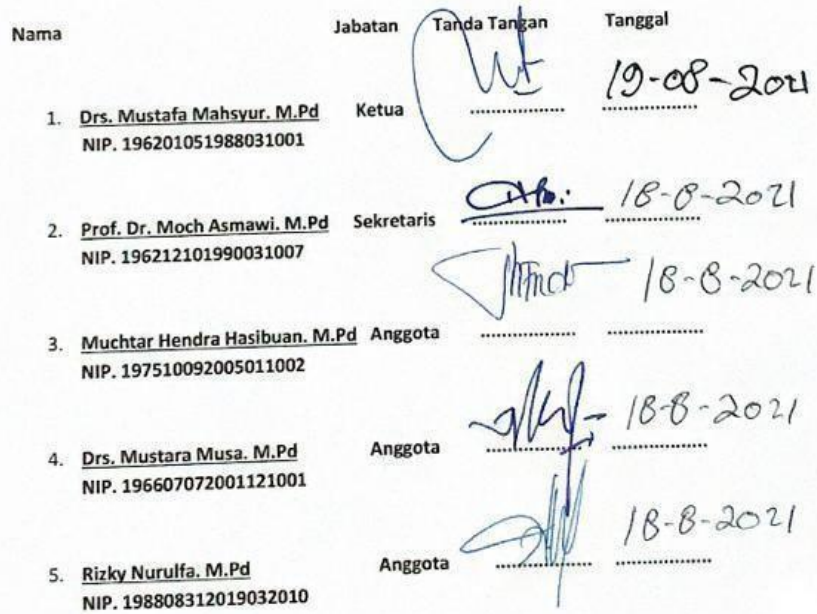 Nama Jabatan Tanda Tangan Tanggal
1. Drs. Mustafa Mahsyur. M.Pd Ketua ............... 19-08-2021
NIP. 196201051988031001
2. Prof. Dr. Moch Asmawi. M.Pd Sekretaris ............... 18-8-2021
NIP. 196212101990031007
3. Muchtar Hendra Hasibuan. M.Pd Anggota ............... 18-8-2021
NIP. 197510092005011002
4. Drs. Mustara Musa. M.Pd Anggota ............... 18-8-2021
NIP. 196607072001121001
5. Rizky Nurulfa. M.Pd Anggota ............... 18-8-2021
NIP. 198808312019032010